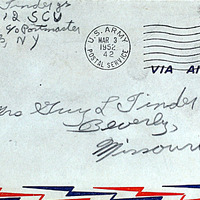 Tinder
12 SCU
c/o Postmaster
N Y
U.S. ARMY
MAR 3
1952
42
POSTAL SERVICE
VIA AI
rs Guy L Tinder
Beverly,
Missouri